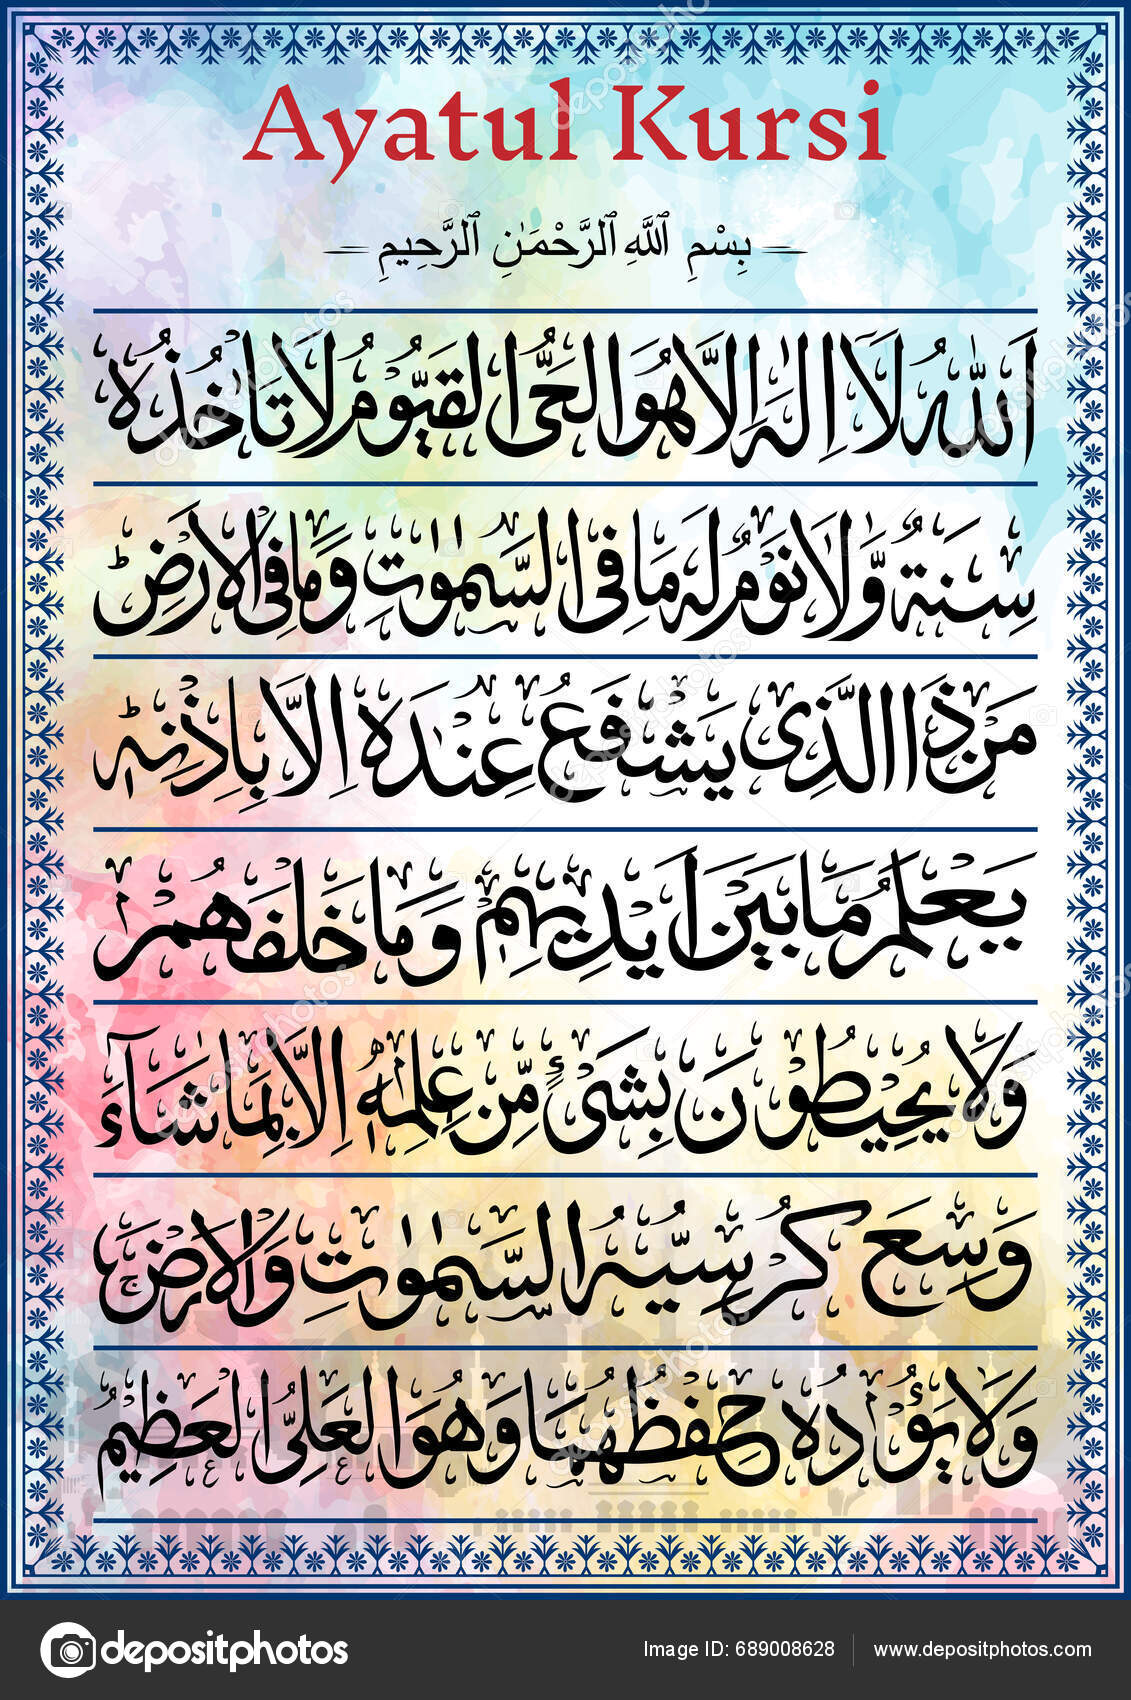 Ayatul Kursi
بِسْمِ ٱللَّهِ ٱلرَّحْمَـٰنِ ٱلرَّحِيمِ
اَللّٰهُ لَآ اِلٰهَ اِلَّا هُوَ الْحَىُّ الْقَيُّوْمُ لَا تَاْخُذُهٗ
سِنَةٌ وَّلَا نَوْمٌ لَهٗ مَا فِى السَّمٰوٰتِ وَمَا فِى الْاَرْضِؕ
مَنْ ذَا الَّذِىْ يَشْفَعُ عِنْدَهٗ اِلَّا بِاِذْنِهٖؕ
يَعْلَمُ مَا بَيْنَ اَيْدِيْهِمْ وَمَا خَلْفَهُمْ
وَلَا يُحِيْطُوْنَ بِشَىْءٍ مِّنْ عِلْمِهٖٓ اِلَّا بِمَا شَآءَ
وَسِعَ كُرْسِيُّهُ السَّمٰوٰتِ وَالْاَرْضَۚ
وَلَا يَـُٔوْدُهٗ حِفْظُهُمَا وَهُوَ الْعَلِىُّ الْعَظِيْمُ
depositphotos
Image ID: 689008628 www.depositphotos.com